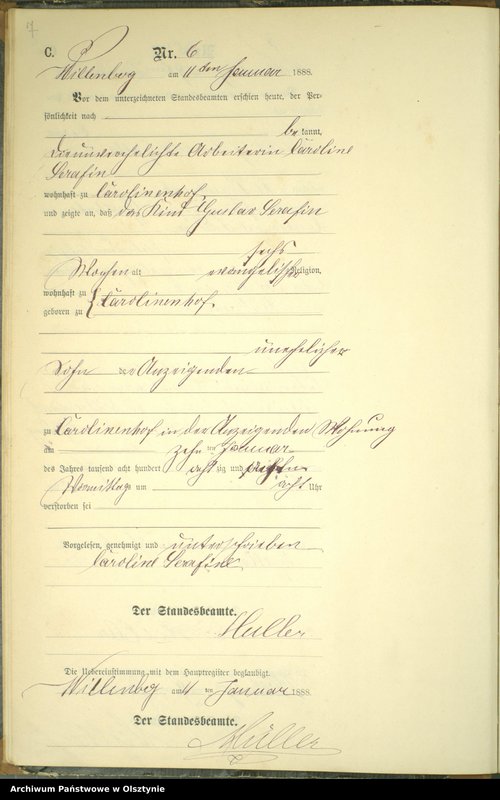 7
C.
Nr. 6
Willenberg am 11ten Januar 1888.
Vor dem unterzeichneten Standesbeamten erschien heute, der Per-
sönlichkeit nach
bekannt,
die unverehelichte Arbeiterin Caroline
Serafin
wohnhaft zu Carolinenhof,
und zeigte an, daß das Kind Gustav Serafin
sechs
Wochen alt evangelischer Religion,
wohnhaft zu
geboren zu Carolinenhof,
unehelicher
Sohn der Anzeigenden
zu Carolinenhof in der Anzeigenden Wohnung
am zehnten Januar
des Jahres tausend acht hundert achtzig und
Vormittags um acht Uhr
verstorben sei
Vorgelesen, genehmigt und unterschrieben
Caroline Serafin
Der Standesbeamte.
Müller
Die Uebereinstimmung mit dem Hauptregister beglaubigt.
Willenberg am 11ten Januar 1888.
Der Standesbeamte.
Müller
Archiwum Państwowe w Olsztynie